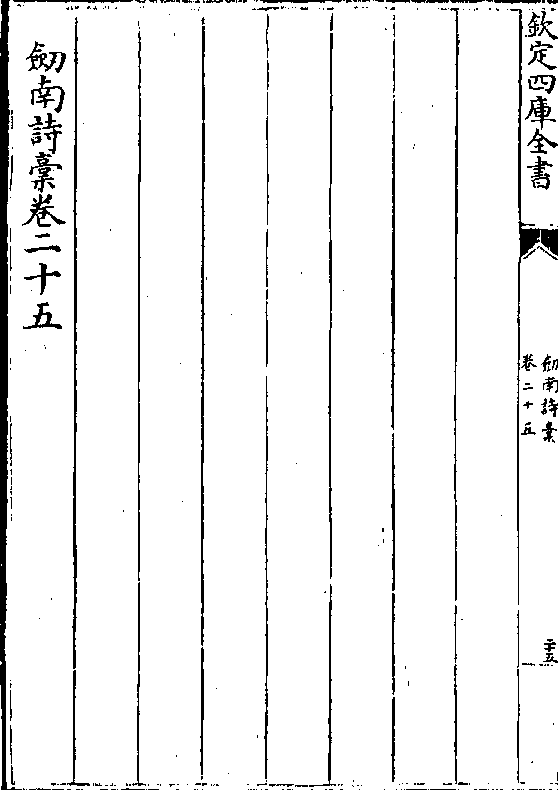 欽定四庫全書
劒南詩稾
卷二十五
二十五
劒南詩稾卷二十五